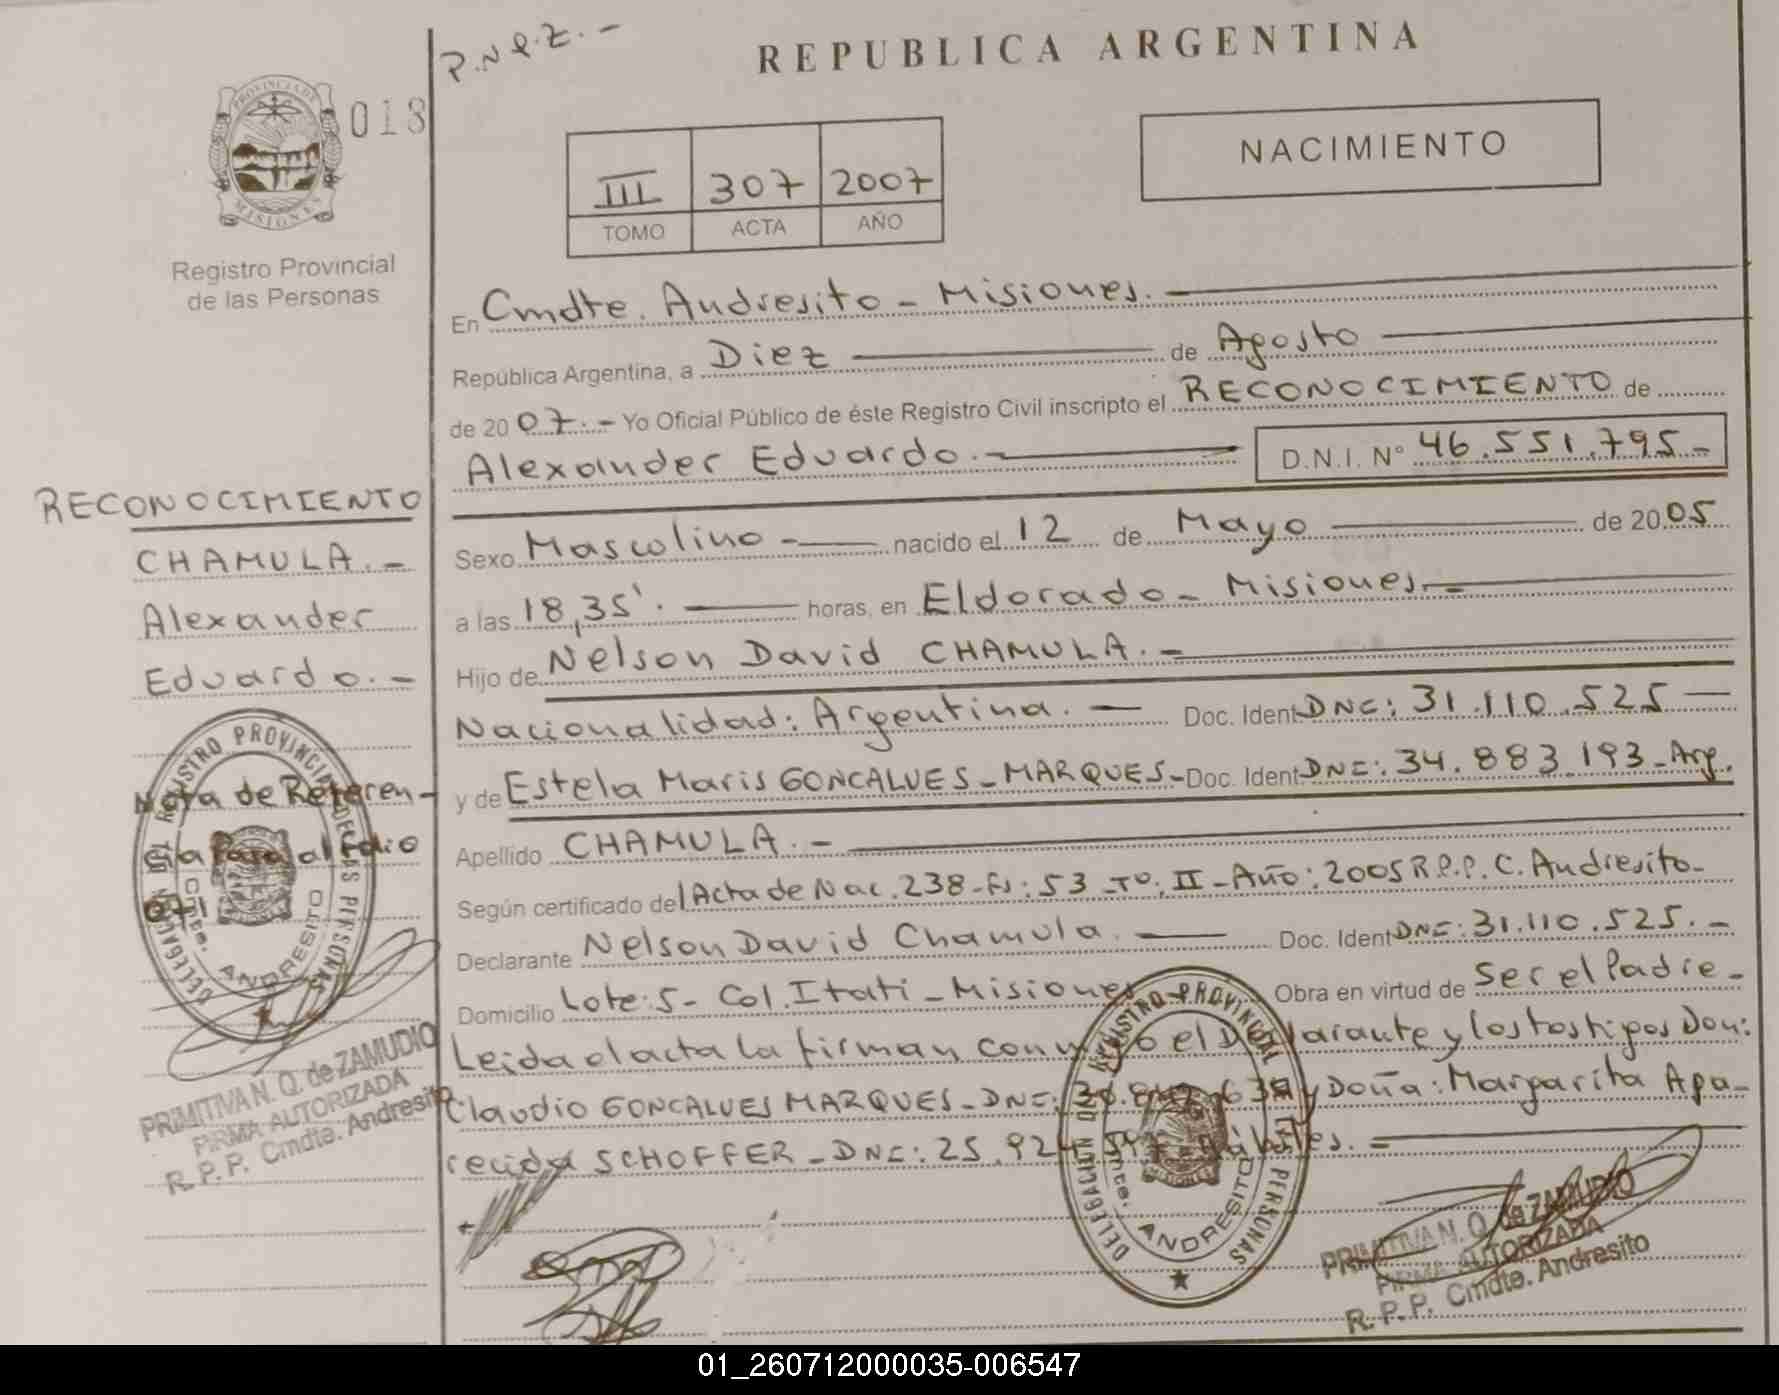 P.N.Q.Z.-
REPUBLICA ARGENTINA
PROVINCIA DE
MISIONES
018
Registro Provincial
de las Personas
III 307 2007
TOMO ACTA AÑO
NACIMIENTO
En Cmdte. Andresito - Misiones.
República Argentina, a Diez de Agosto
de 2007.- Yo Oficial Público de éste Registro Civil inscripto el RECONOCIMIENTO de
Alexander Eduardo.- D.N.I. N° 46.551.795-
Sexo Masculino - nacido el 12 de Mayo de 2005
a las 18,35'. horas, en Eldorado - Misiones.-
Hijo de Nelson David CHAMULA.-
Nacionalidad: Argentina.- Doc. Ident DNI: 31.110.525
y de Estela Maris GONCALVES - MARQUES - Doc. Ident DNI: 34.883.193 - Arg.
Apellido CHAMULA.-
Según certificado del Acta de Nac. 238 - Fs: 53 - Tº: II - Año: 2005 R.P.P. C. Andresito-
Declarante Nelson David Chamula. Doc. Ident DNI: 31.110.525.-
Domicilio Lote: 5 - Col. Itati - Misiones Obra en virtud de Ser el Padre -
Leida el acta la firman conmigo el Declarante y los testigos Don:
Claudio GONCALVES MARQUES - DNI: y Doña: Margarita Apa-
recida SCHOFFER - DNI: 25.92 hábiles.=
RECONOCIMIENTO
CHAMULA.-
Alexander
Eduardo.-
Nota de Referen-
cia Pasa al Folio
071
REGISTRO PROVINCIAL DE LAS PERSONAS
DELEGACION DE
Cmte. ANDRESITO
PRIMITIVA N. Q. de ZAMUDIO
FIRMA AUTORIZADA
R. P. P. Cmdte. Andresito
REGISTRO PROVINCIAL DE LAS PERSONAS
DELEGACION DE
Cmte. ANDRESITO
PRIMITIVA N. Q. de ZAMUDIO
FIRMA AUTORIZADA
R. P. P. Cmdte. Andresito
01_260712000035-006547